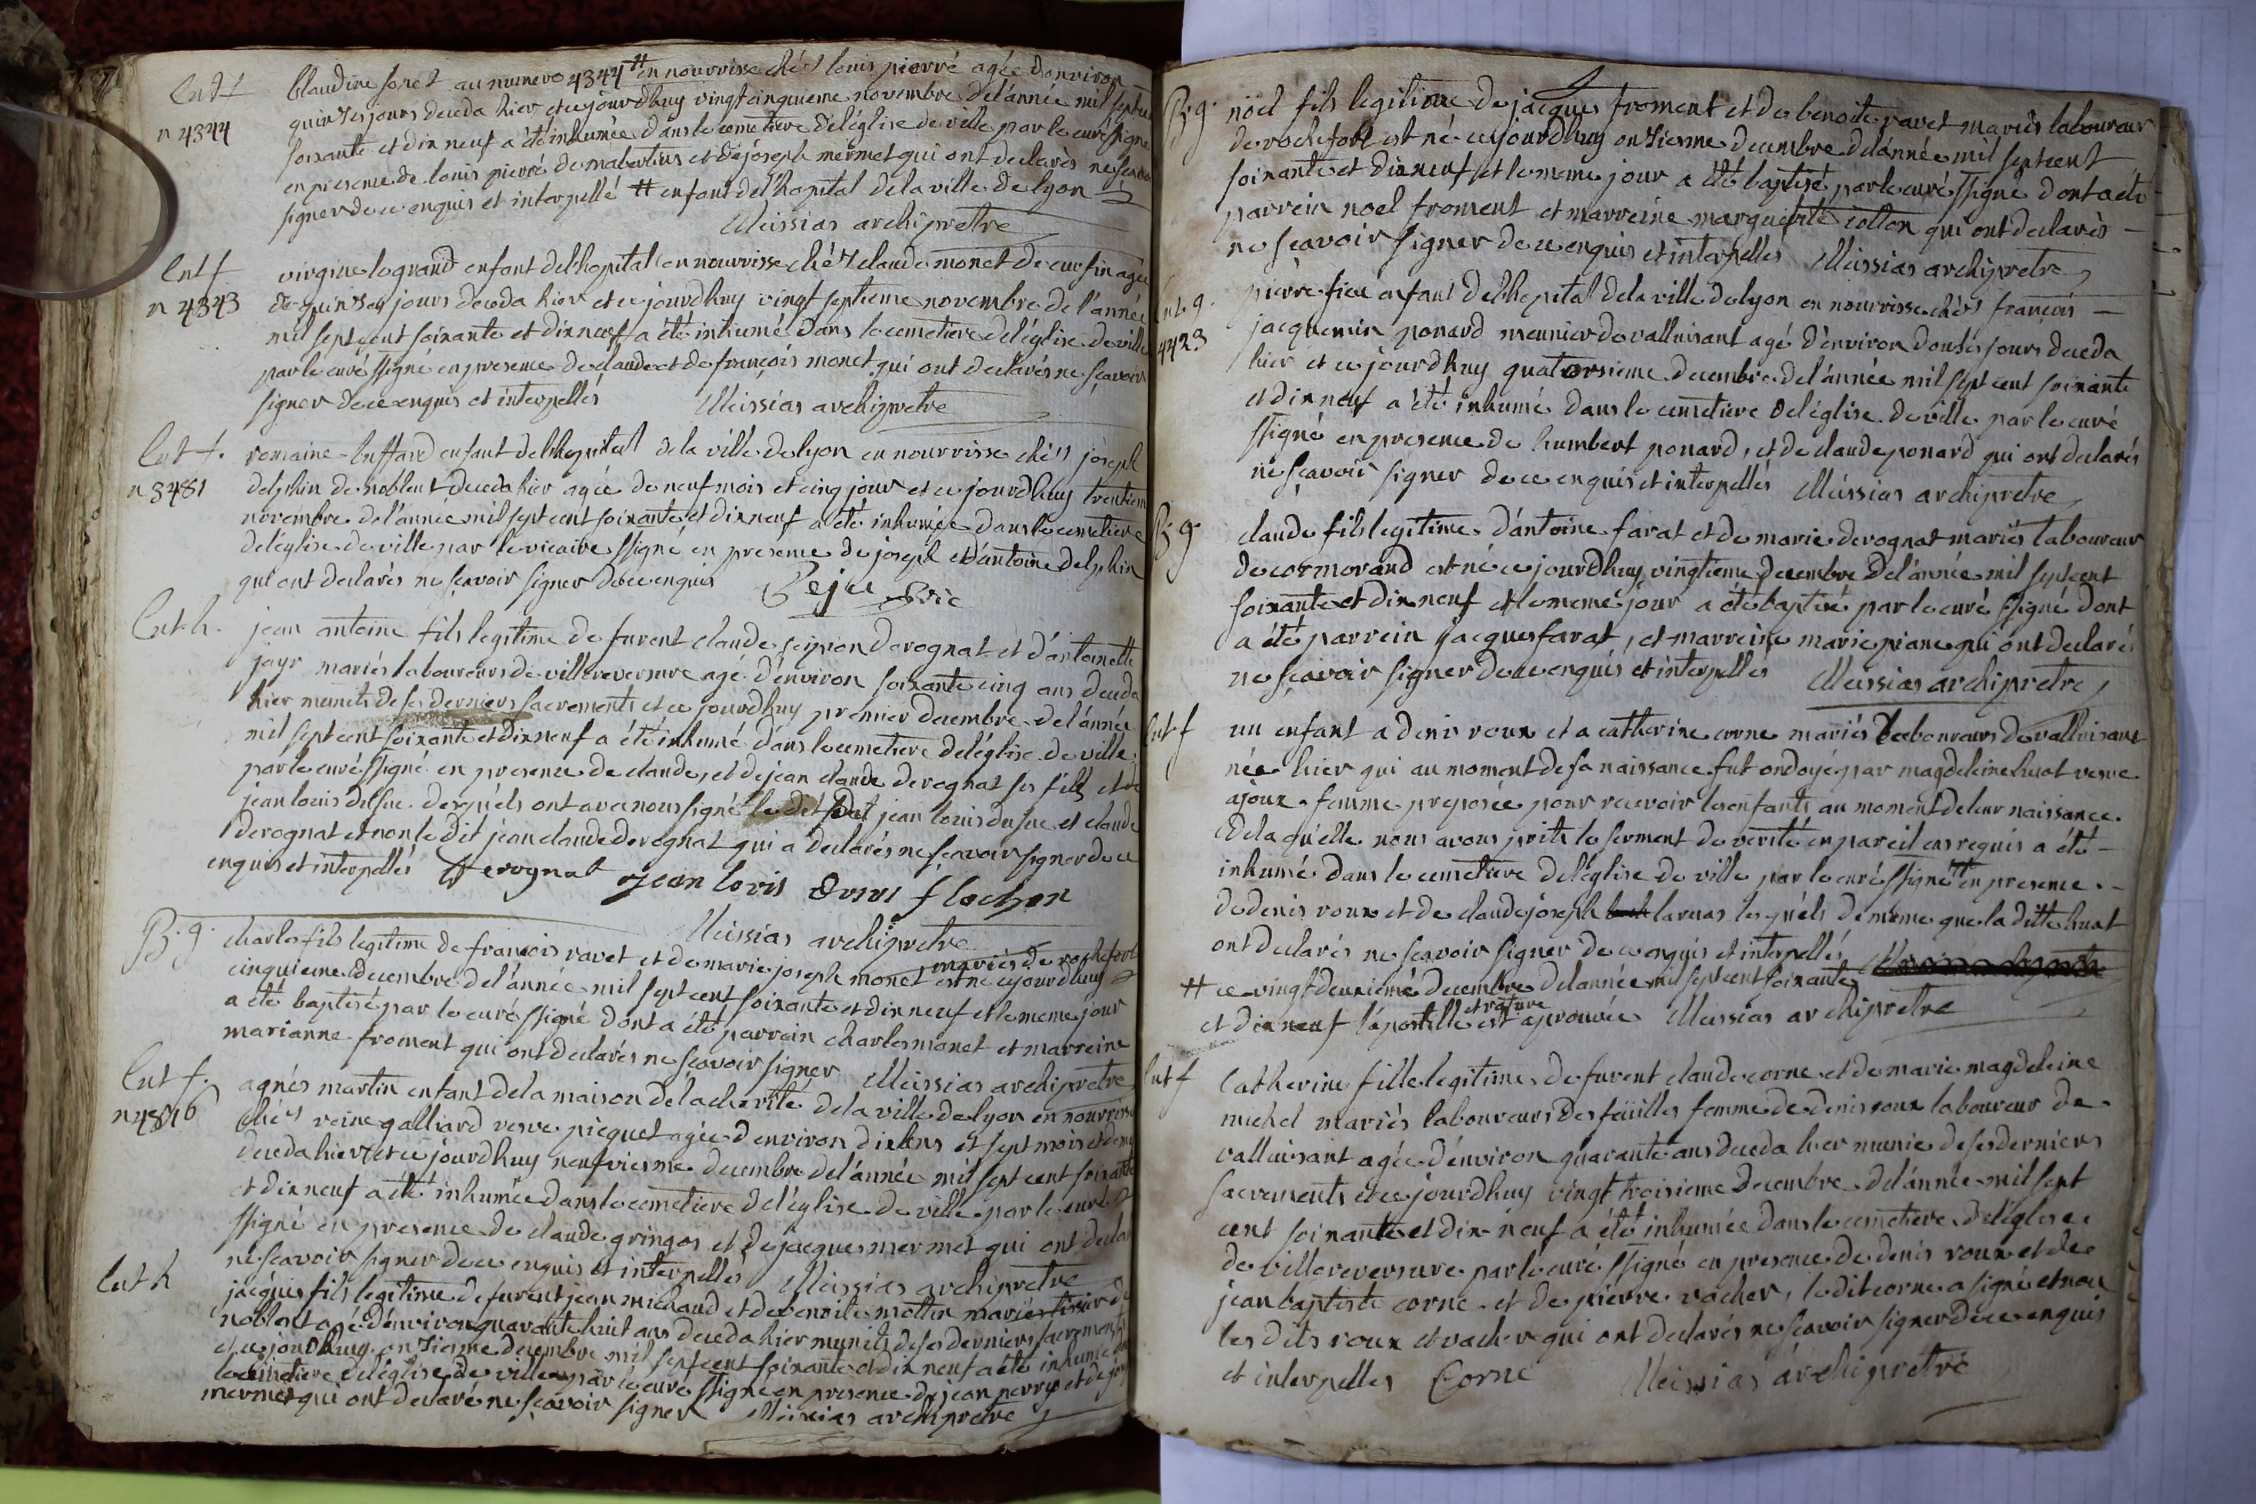 Ent f
n 4344
blaudine foret au numero 4344 # en nourrisse chés louis pierré agée denviron
quinses jours deceda hier et ce jourdhuy vingt cinquieme novembre de l'année mil sept cent
soixante et dix neuf a été inhumée dans le cemetiere de l'église de ville par le curé ssigné
en presence de louis pierré de et de joseph mermet qui ont declarés ne scavoir
signer de ce enquis et interpellé # enfant de l'hopital de la ville de lyon
Meissias archipretre
Ent f
n 4343
virgine legrand enfant de lhopital en nourrisse chés claude monet de agée
de quinses jours deceda hier et ce jourdhuy vingt septieme novembre de l'année
mil sept cent soixante et dix neuf a été inhumé dans le cemetiere de l'église de ville
par le curé ssigné en presence de claude et de françois monet qui ont declarés ne scavoir
signer de ce enquis et interpellés Meissias archipretre
Ent f.
n 3481
romaine buffard enfant de lhopital de la ville de lyon en nourrisse chés joseph
delphin de noblent deceda hier agée de neuf mois et cinq jour et ce jourdhuy trentieme
novembre de l'année mil sept cent soixante et dix neuf a été inhumée dans le cemetiere
de l'église de ville par le vicaire ssigné en presence de joseph et d'antoine delphin
qui ont declarés ne scavoir signer de ce enquis Peju vic
Ent h.
jean antoine fils legitime de furent claude scipion derognat et d'antoinette
jayr mariés laboureurs de villereversure agé d'environ soixante cinq ans deceda
hier munit de ses derniers sacrements et ce jourdhuy premier decembre de l'année
mil sept cent soixante et dix neuf a été inhumé dans le cemetiere de l'église de ville
par le curé ssigné en presence de claude, et de jean claude derognat ses fils et de
jean louis dusuc desquels ont avec nous signé le dit jean louis dusuc et claude
derognat et non le dit jean claude derognat qui a declarés ne scavoir signer de ce
enquis et interpellés Derognat jean lovis dvsvs flochon
Meissias archipretre
B. g.
charles fils legitime de françois ravet et de marie joseph monet mariés de rochefort est né cejourdhuy
cinquieme decembre de l'année mil sept cent soixante et dix neuf et le meme jour
a été baptisé par le curé ssigné dont a été parrein charles monet et marreine
marianne froment qui ont declarés ne scavoir signer Meissias archipretre
Ent f.
n 4816
agnés martin enfant de la maison de la charité de la ville de lyon en nourrisse
chés reine galliard veuve picquet agée d'environ dix ans et sept mois et demi
deceda hier et ce jourdhuy neufviesme decembre de l'année mil sept cent soixante
et dix neuf a été inhumée dans le cemetiere de l'église de ville par le curé
ssigné en presence de claude gringos et de jacques mermet qui ont declarés
ne scavoir signer de ce enquis et interpellés Meissias archipretre
Ent h
jacques fils legitime de furent jean michaud et de benoite mollin mariés tissier de
noblent agé d'environ quarante huit ans deceda hier munit de ses derniers sacrements
et ce jourdhuy onsiesme decembre mil sept cent soixante et dix neuf a été inhumé dans
le cemetiere de l'église de ville par le curé ssigné en presence de jean perret et de joseph
mermet qui ont declaré ne scavoir signer Meissias archipretre
B. g.
nöel fils legitime de jacques froment et de benoite ravet mariés laboureur
de rochefort est né cejourdhuy onsiesme decembre de l'année mil sept cent
soixante et dix neuf et le meme jour a été baptisé par le curé ssigné dont a été
parrein noel froment et marreine marguerite collon qui ont declarés
ne scavoir signer de ce enquis et interpelles Meissias archipretre
Ent. g.
4423
pierre enfant de lhopital de la ville de lyon en nourrisse chés françois
jacquemin ponard meunier de valluisant agé d'environ douses jours deceda
hier et ce jourdhuy quatorsieme decembre de l'année mil sept cent soixante
et dix neuf a été inhumé dans le cemetiere de l'église de ville par le curé
ssigné en presence de humbert ponard, et de claude ponard qui ont declarés
ne scavoir signer de ce enquis et interpellés Meissias archipretre
B. g.
claude fils legitime d'antoine farat et de marie derognat mariés laboureur
de cormorand est né ce jourdhuy vingtieme decembre de l'année mil sept cent
soixante et dix neuf et le meme jour a été baptisé par le curé ssigné dont
a été parrein jacques farat, et marreine marie piane qui ont declarés
ne scavoir signer de ce enquis et interpelles Meissias archipretre
Ent f
un enfant a denis roux et a catherine corne mariés laboureurs de valluisant
née hier qui au moment de sa naissance fut ondoyé par magdeleine huot veuve
ajoux femme preposée pour recevoir les enfants au moment de leur naissance
de la quelle nous avons prits le serment de verité en pareil cas requis a été
inhumé dans le cemetiere de l'église de ville par le curé ssigné # en presence
de denis roux et de claude joseph larvas les quéls de meme que la ditte huot
ont declarés ne scavoir signer de ce enquis et interpellés
# ce vingt deuxiemé decembre de l'année mil sept cent soixante
et dix neuf l'apostille et rature est aprouvée Meissias archipretre
Ent f
Catherine fille legitime de furent claude corne et de marie magdeleine
michel mariés laboureurs des feüilles femme de denis roux laboureur de
valluisant agée d'environ quarante ans deceda hier munie de ses derniers
sacrements et ce jourdhuy vingt troisieme decembre de l'année mil sept
cent soixante et dix neuf a été inhumée dans le cemetiere de l'église
de villereversure par le curé ssigné en presence de denis roux et de
jean baptiste corne et de pierre vacher, le dit corne a signé et non
les dits roux et vacher qui ont declarés ne scavoir signer de ce enquis
et interpelles Corne Meissias archipretre